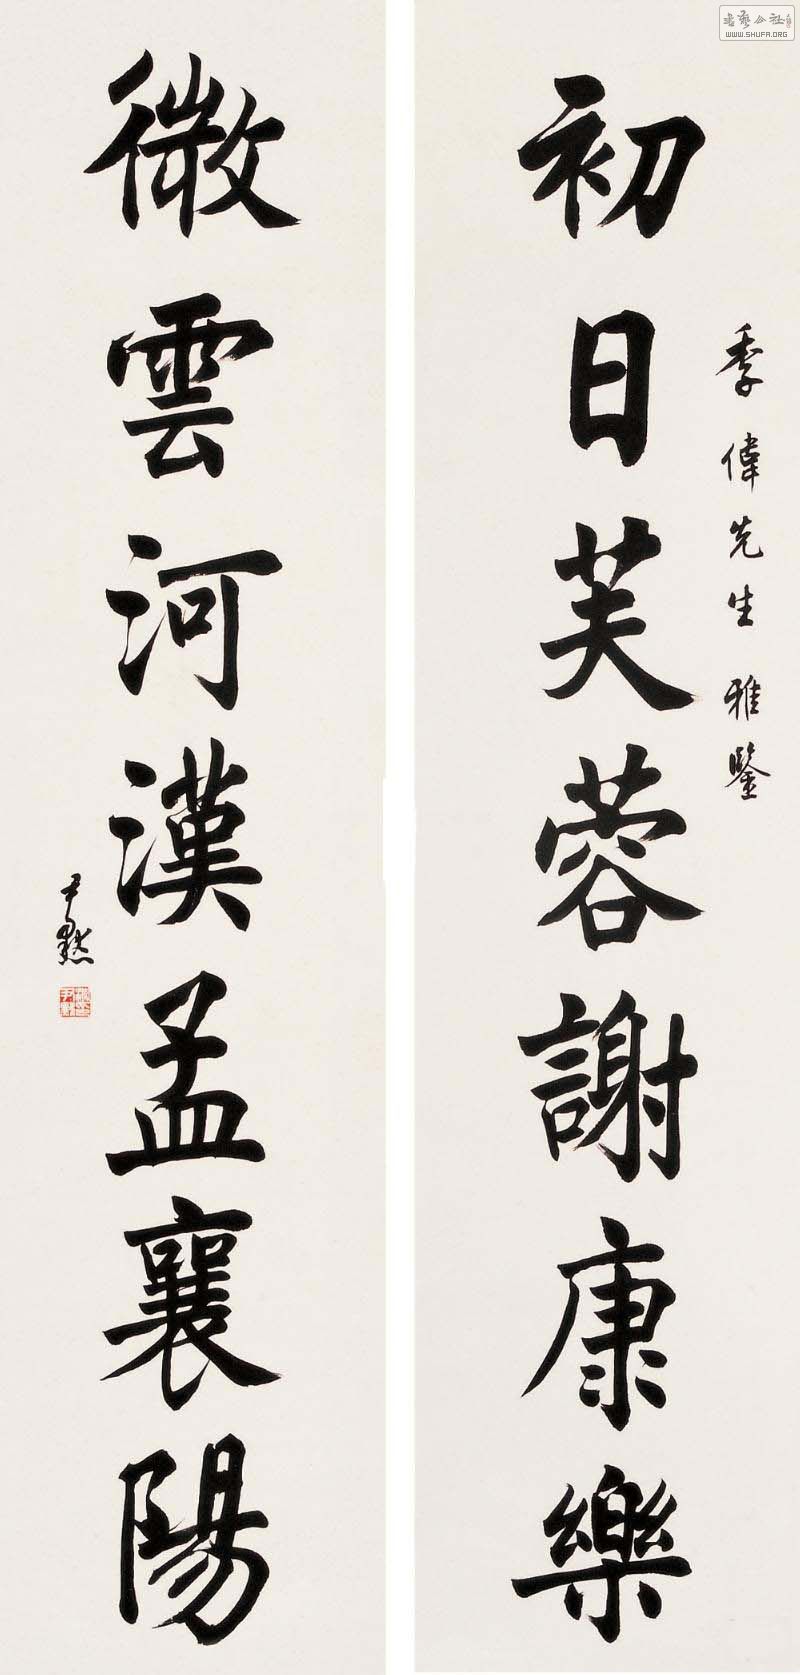 初日芙蓉謝康樂
季偉先生雅鑒
微雲河漢孟襄陽
尹默
書藝公社
WWW.SHUFA.ORG